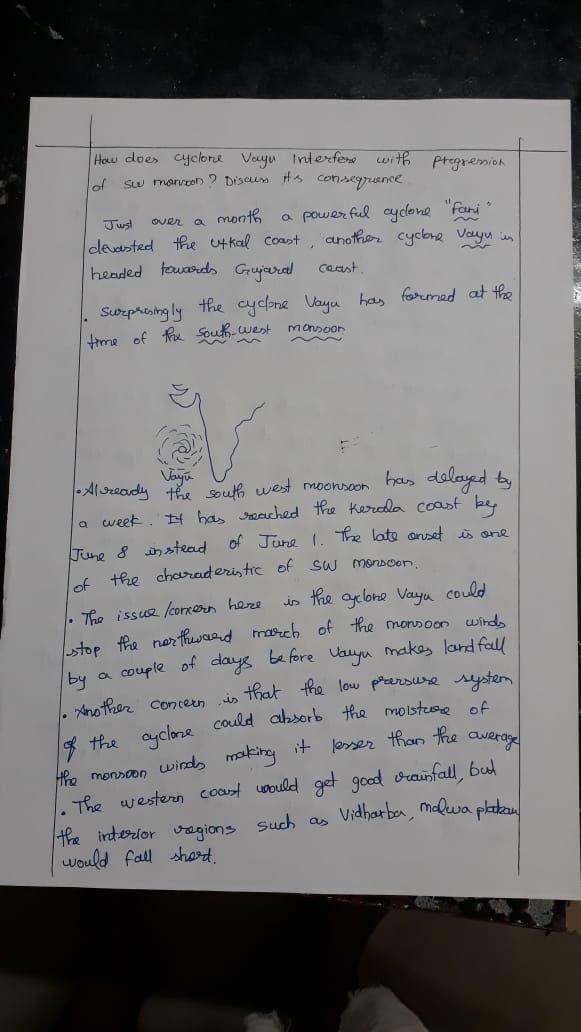 How does cyclone Vayu Interfere with progression
of sw monsoon? Discuss its consequence
Just over a month a powerful cyclone "Fani"
devasted the utkal coast, another cyclone Vayu is
headed towards Gujarat coast.
. Surprisingly the cyclone Vayu has formed at the
time of the south-west monsoon
Vayu
. Already the south west moonsoon has delayed by
a week. It has reached the Kerala coast by
June 8 instead of June 1. The late onset is one
of the characteristic of SW monsoon.
. The issue/concern here is the cyclone Vayu could
stop the northward march of the monsoon winds
by a couple of days before Vayu makes landfall
. Another concern is that the low pressure system
of the cyclone could absorb the moisture of
the monsoon winds making it lesser than the average
. The western coast would get good rainfall, but
the interior regions such as Vidharba, malwa plateau
would fall short.